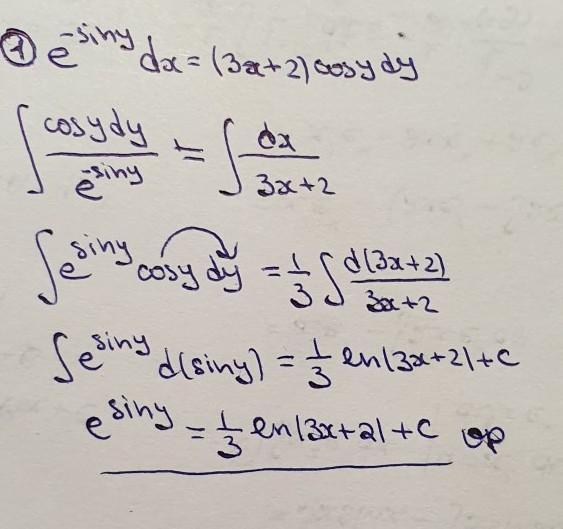 ① e^{-siny} dx = (3x+2) cosy dy
∫ cosy dy / e^{-siny} = ∫ dx / 3x+2
∫ e^{siny} cosy dy = 1/3 ∫ d(3x+2) / 3x+2
∫ e^{siny} d(siny) = 1/3 ln|3x+2| + c
e^{siny} = 1/3 ln|3x+2| + c